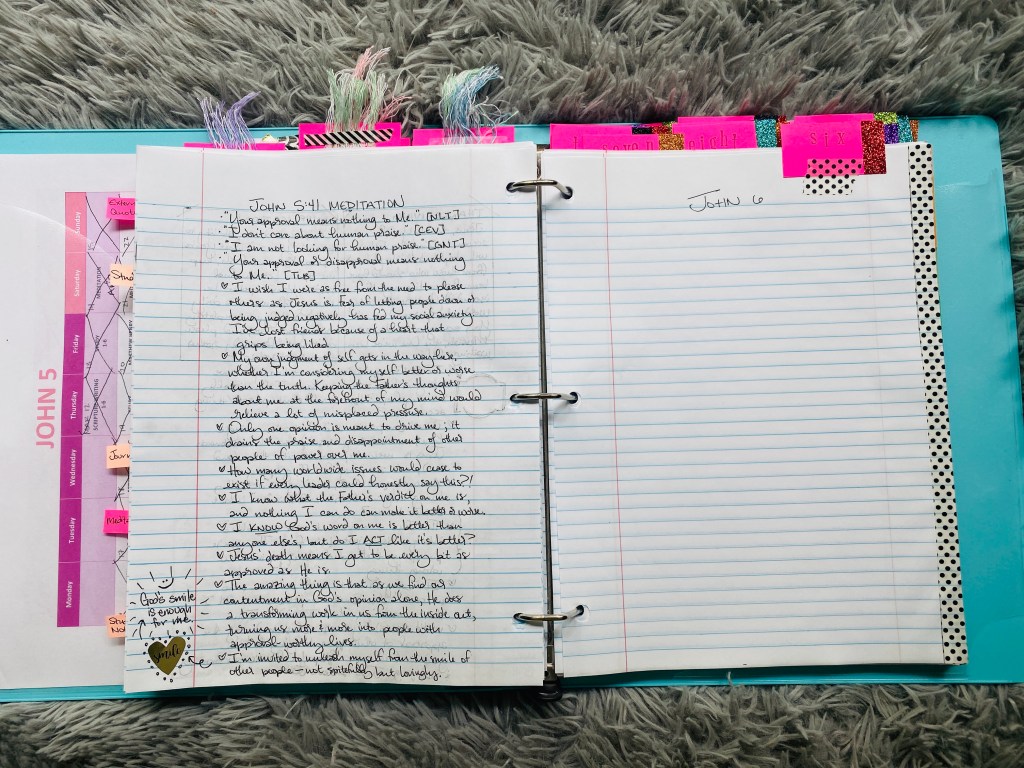 JOHN 5
Sunday
Saturday
Friday
Thursday
Wednesday
Tuesday
Monday
SCRIPTURE WRITING
JOHN 5:41 MEDITATION
• "Your approval means nothing to Me." [NLT]
• "I don't care about human praise." [CEV]
• "I am not looking for human praise." [GNT]
• "Your approval or disapproval means nothing
to Me." [TLB]
♡ I wish I were as free from the need to please
others as Jesus is. Fear of letting people down or
being judged negatively has fed my social anxiety.
I've lost friends because of a heart that
grips being liked.
♡ My own judgment of self gets in the way here,
whether I'm considering myself better or worse
than the truth. Keeping the Father's thoughts
about me at the forefront of my mind would
relieve a lot of misplaced pressure.
♡ Only one opinion is meant to drive me; it
drains the praise and disappointment of other
people of power over me.
♡ How many worldwide issues would cease to
exist if every leader could honestly say this?!
♡ I know what the Father's verdict on me is,
and nothing I can do can make it better or worse.
♡ I KNOW God's word on me is better than
anyone else's, but do I ACT like it's better?
♡ Jesus' death means I get to be every bit as
approved as He is.
♡ The amazing thing is that as we find our
contentment in God's opinion alone, He does
a transforming work in us from the inside out,
turning us more & more into people with
approval-worthy lives.
♡ I'm invited to unleash myself from the smile of
other people — not spitefully but lovingly.
God's smile
is enough
for me.
smile
seven
eight
six
JOHN 6